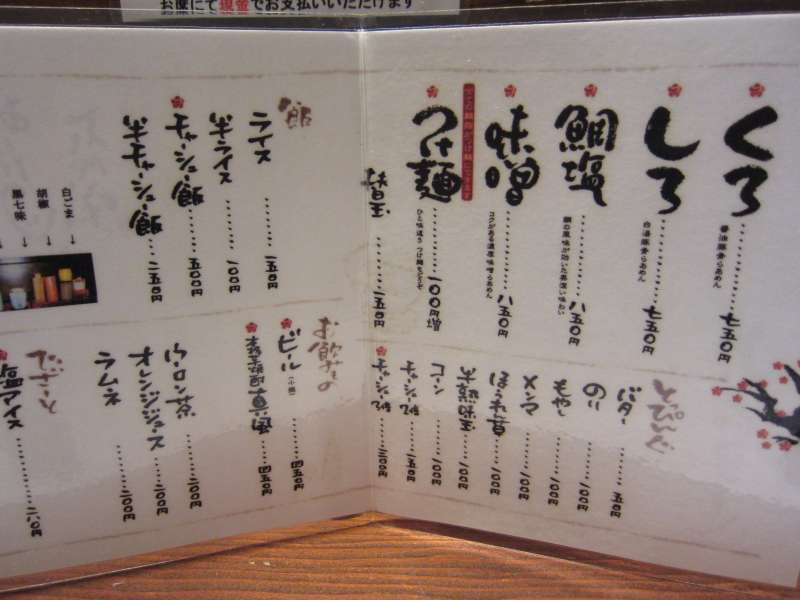 お席にて現金でお支払いいただけます
くろ
醤油豚骨らあめん
七五〇円
しろ
白湯豚骨らあめん
七五〇円
鯛塩
鯛の風味が効いた奥深い味わい
八五〇円
味噌
コクがある濃厚味噌らあめん
八五〇円
つけ麺
ひと味違う つけ麺もどうぞ
一〇〇円増
替玉
一五〇円
とっぴんぐ
バター
五〇円
のり
一〇〇円
もやし
一〇〇円
メンマ
一〇〇円
ほうれん草
一〇〇円
半熟味玉
一〇〇円
コーン
一〇〇円
チャーシュー
一五〇円
チャーシュー
三〇〇円
飯
ライス
一五〇円
半ライス
一〇〇円
チャーシュー飯
五〇〇円
半チャーシュー飯
二五〇円
白ごま
胡椒
黒七味
お飲みもの
ビール
(小瓶)
四五〇円
四五〇円
ウーロン茶
二〇〇円
オレンジジュース
二〇〇円
ラムネ
二〇〇円
でざーと
塩アイス
二八〇円